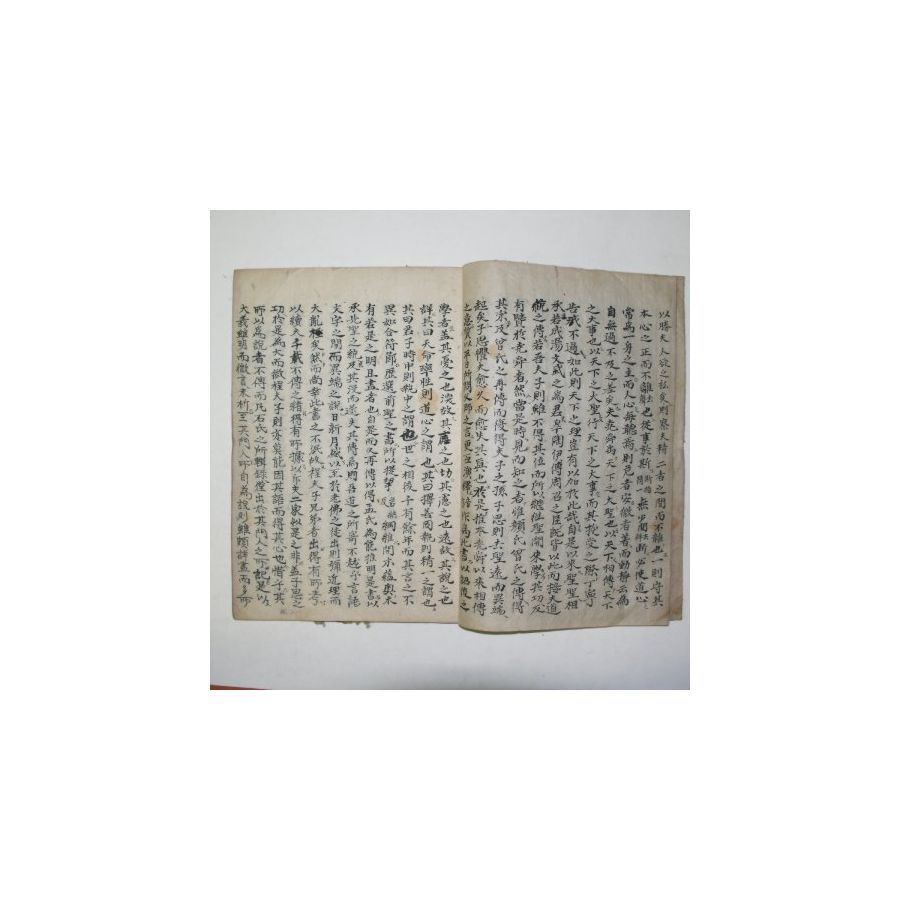 以勝夫人欲之私矣則察夫精二者之間而不雜也一則守其
本心之正而不離也從事於斯無少間斷必使道心
常為一身之主而人心每聽焉則危者安微者著而動靜云為
自無過不及之差矣夫堯舜禹天下之大聖也以天下相傳天下
之大事也以天下之大聖行天下之大事而其授受之際丁寧
告戒不過如此則天下之理豈有以加於此哉自是以來聖聖相
承若成湯文武之為君皐陶伊傅周召之為臣既皆以此而接夫道
統之傳若吾夫子則雖不得其位而所以繼往聖開來學其功反
有賢於堯舜者然當是時見而知之者惟顔氏曾氏之傳得
其宗及曾氏之再傳而復得夫子之孫子思則去聖遠而異端
起矣子思懼夫愈久而愈失其眞也於是推本堯舜以來相傳
之意質以平日所聞父師之言更互演繹作為此書以詔後之
學者蓋其憂之也深故其慮之也切其慮之也遠故其說之也
詳其曰天命率性則道心之謂也其曰擇善固執則精一之謂也
其曰君子時中則執中之謂也世之相後千有餘年而其言之不
異如合符節歷選前聖之書所以提挈綱維開示蘊奧未
有若是之明且盡者也自是而又再傳以得孟氏為能推明是書以
承先聖之統及其沒而遂失其傳焉則吾道之所寄不越乎言語
文字之間而異端之說日新月盛以至於老佛之徒出則彌近理而
大亂極矣然而尚幸此書之不泯故程夫子兄弟者出得有所考
以續夫千載不傳之緖得有所據以斥夫二家似是之非蓋子思之
功於是為大而微程夫子則亦莫能因其語而得其心也惜乎其
所以為說者不傳而凡石氏之所輯錄僅出於其門人之所記是以
大義雖明而微言未析至其門人所自為說則雖頗詳盡而多所